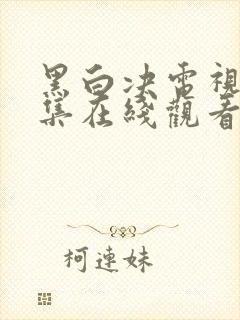 黑白决電視
集在綫觀看
柯連妹